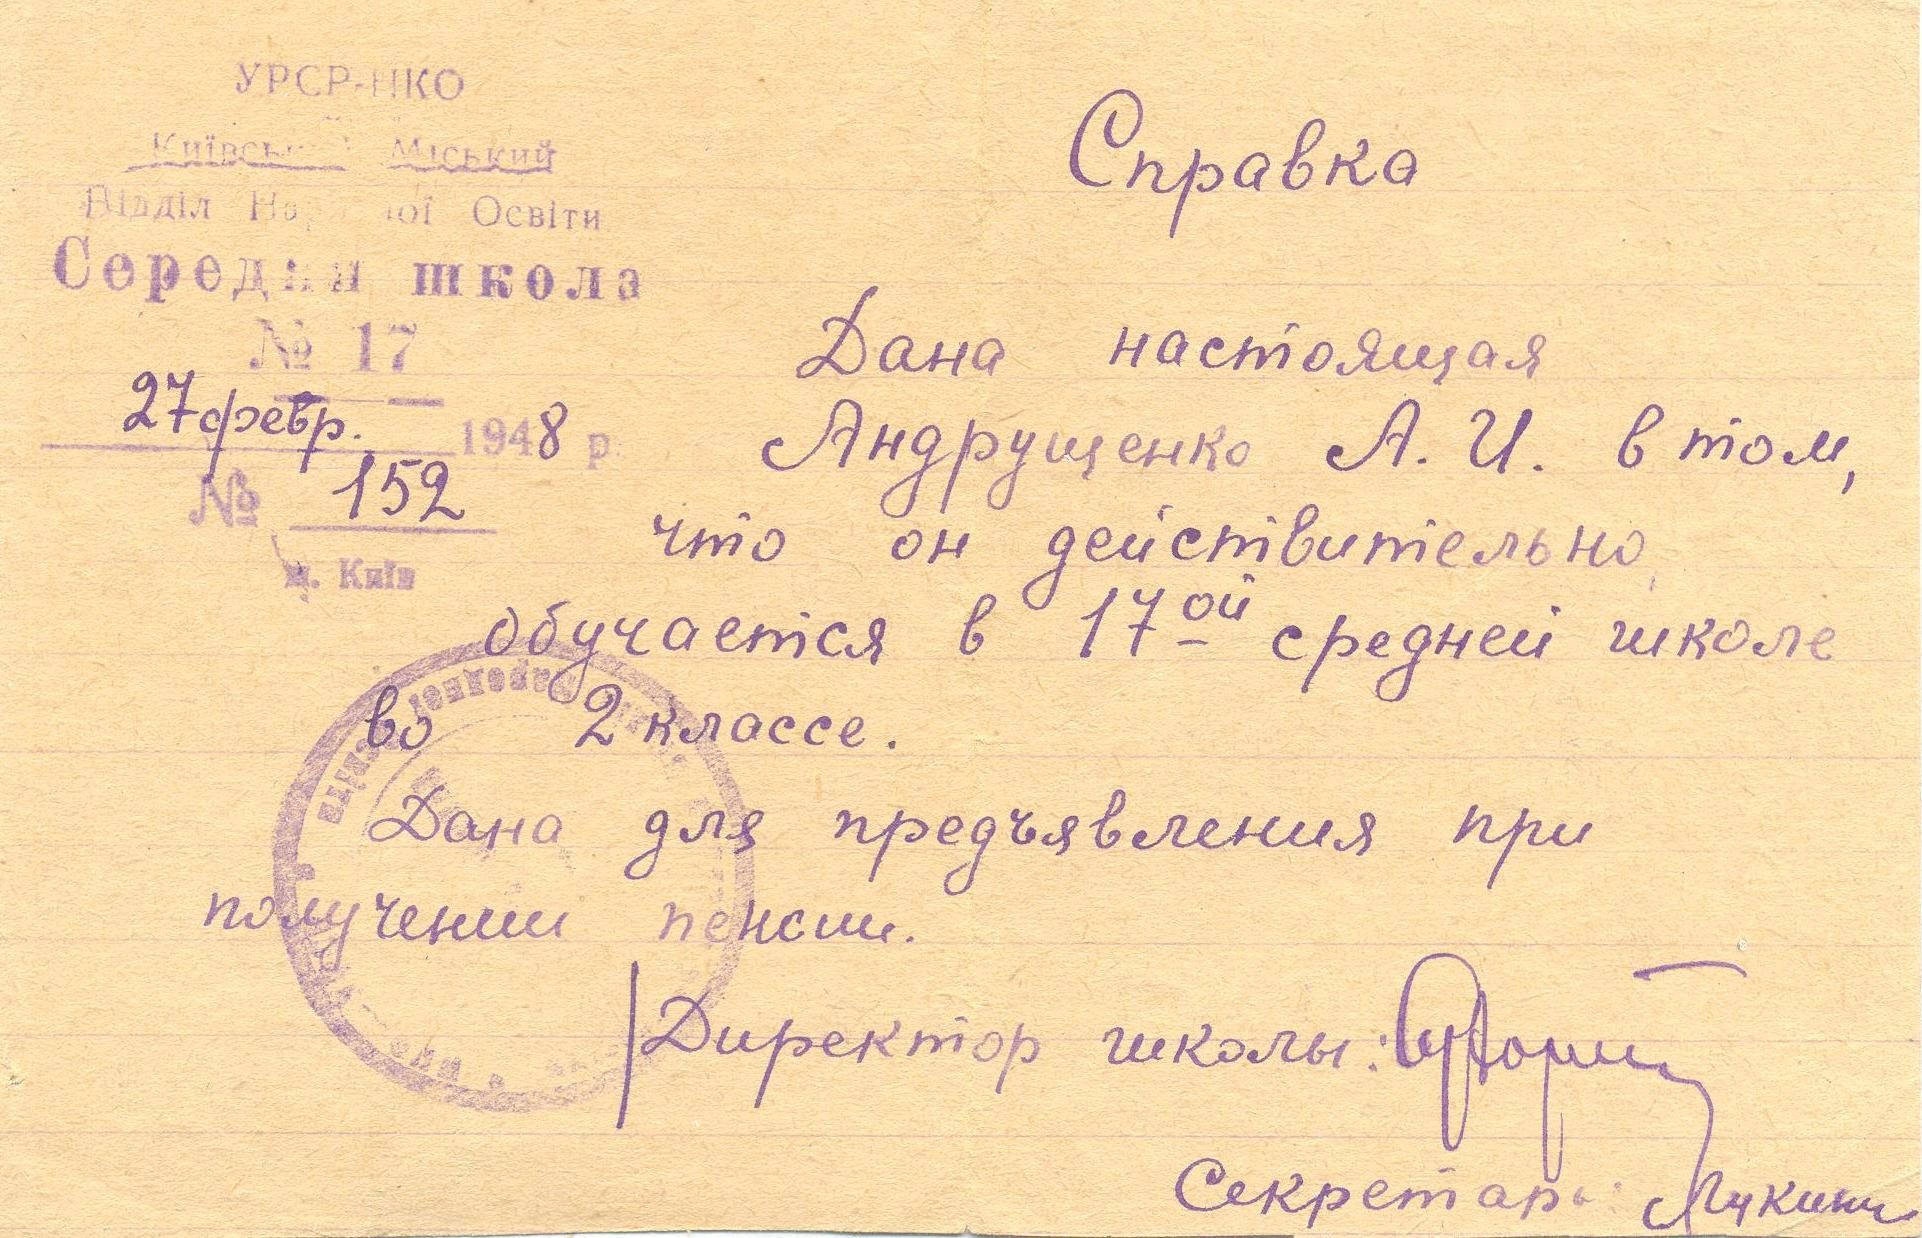 УРСР-НКО
Київський Міський
Відділ Народної Освіти
Середня школа
№ 17
27 февр. 1948 р.
№ 152
м. Київ
Справка
Дана настоящая
Андрущенко А. И. в том,
что он действительно
обучается в 17ой средней школе
во 2 классе.
Дана для предъявления при
получении пенсии.
Директор школы:
Секретарь: